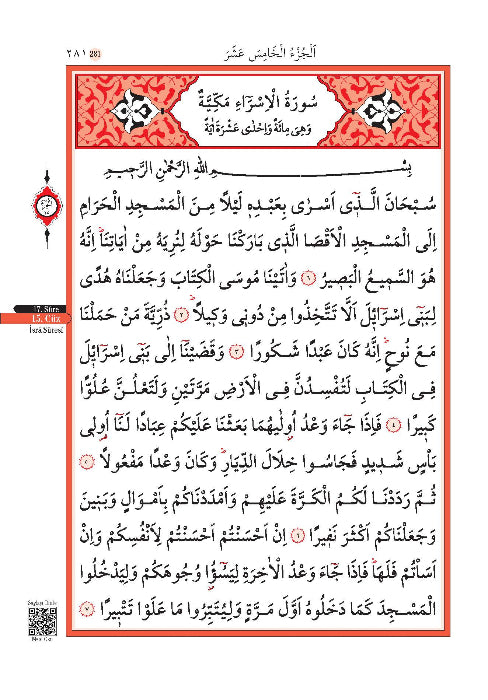 ٢٨١ 281
اَلْجُزْءُ الْخَامِسَ عَشَرَ
سُورَةُ الْاِسْرَٓاءِ مَكِّيَّةٌ
وَهِيَ مِائَةٌ وَاِحْدٰى عَشْرَةَ اٰيَةً
بِسْمِ اللّٰهِ الرَّحْمٰنِ الرَّحٖيمِ
سُبْحَانَ الَّـذٖٓي اَسْرٰى بِعَبْدِهٖ لَيْلًا مِنَ الْمَسْجِدِ الْحَرَامِ
اِلَى الْمَسْجِدِ الْاَقْصَا الَّذٖي بَارَكْنَا حَوْلَهُ لِنُرِيَهُ مِنْ اٰيَاتِنَاۜ اِنَّهُ
هُوَ السَّمٖيعُ الْبَصٖيرُ ﴿١﴾ وَاٰتَيْنَا مُوسَى الْكِتَابَ وَجَعَلْنَاهُ هُدًى
لِبَنٖٓي اِسْرَٓائٖلَ اَلَّا تَتَّخِذُوا مِنْ دُونٖي وَكٖيلًاۜ ﴿٢﴾ ذُرِّيَّةَ مَنْ حَمَلْنَا
مَعَ نُوحٍۜ اِنَّهُ كَانَ عَبْدًا شَكُورًا ﴿٣﴾ وَقَضَيْنَٓا اِلٰى بَنٖٓي اِسْرَٓائٖلَ
فِي الْكِتَابِ لَتُفْسِدُنَّ فِي الْاَرْضِ مَرَّتَيْنِ وَلَتَعْلُنَّ عُلُوًّا
كَبٖيرًا ﴿٤﴾ فَاِذَا جَٓاءَ وَعْدُ اُو۫لٰيهُمَا بَعَثْنَا عَلَيْكُمْ عِبَادًا لَنَٓا اُو۬لٖي
بَأْسٍ شَدٖيدٍ فَجَاسُوا خِلَالَ الدِّيَارِۜ وَكَانَ وَعْدًا مَفْعُولًا ﴿٥﴾
ثُمَّ رَدَدْنَا لَكُمُ الْكَرَّةَ عَلَيْهِمْ وَاَمْدَدْنَاكُمْ بِاَمْوَالٍ وَبَنٖينَ
وَجَعَلْنَاكُمْ اَكْثَرَ نَفٖيرًا ﴿٦﴾ اِنْ اَحْسَنْتُمْ اَحْسَنْتُمْ لِاَنْفُسِكُمْ وَاِنْ
اَسَأْتُمْ فَلَهَاۜ فَاِذَا جَٓاءَ وَعْدُ الْاٰخِرَةِ لِيَسُٓؤُ۫ا وُجُوهَكُمْ وَلِيَدْخُلُوا
الْمَسْجِدَ كَمَا دَخَلُوهُ اَوَّلَ مَرَّةٍ وَلِيُتَبِّرُوا مَا عَلَوْا تَتْبٖيرًا ﴿٧﴾
17. Sûre
15. Cüz
İsrâ Sûresi